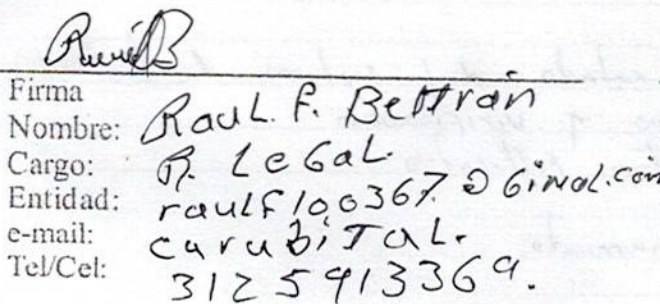 Firma
Nombre: Raul. F. Beltrán
Cargo: R. Legal.
Entidad: raulf100367.@Gimal.com
e-mail: curubital.
Tel/Cel: 3125913369.